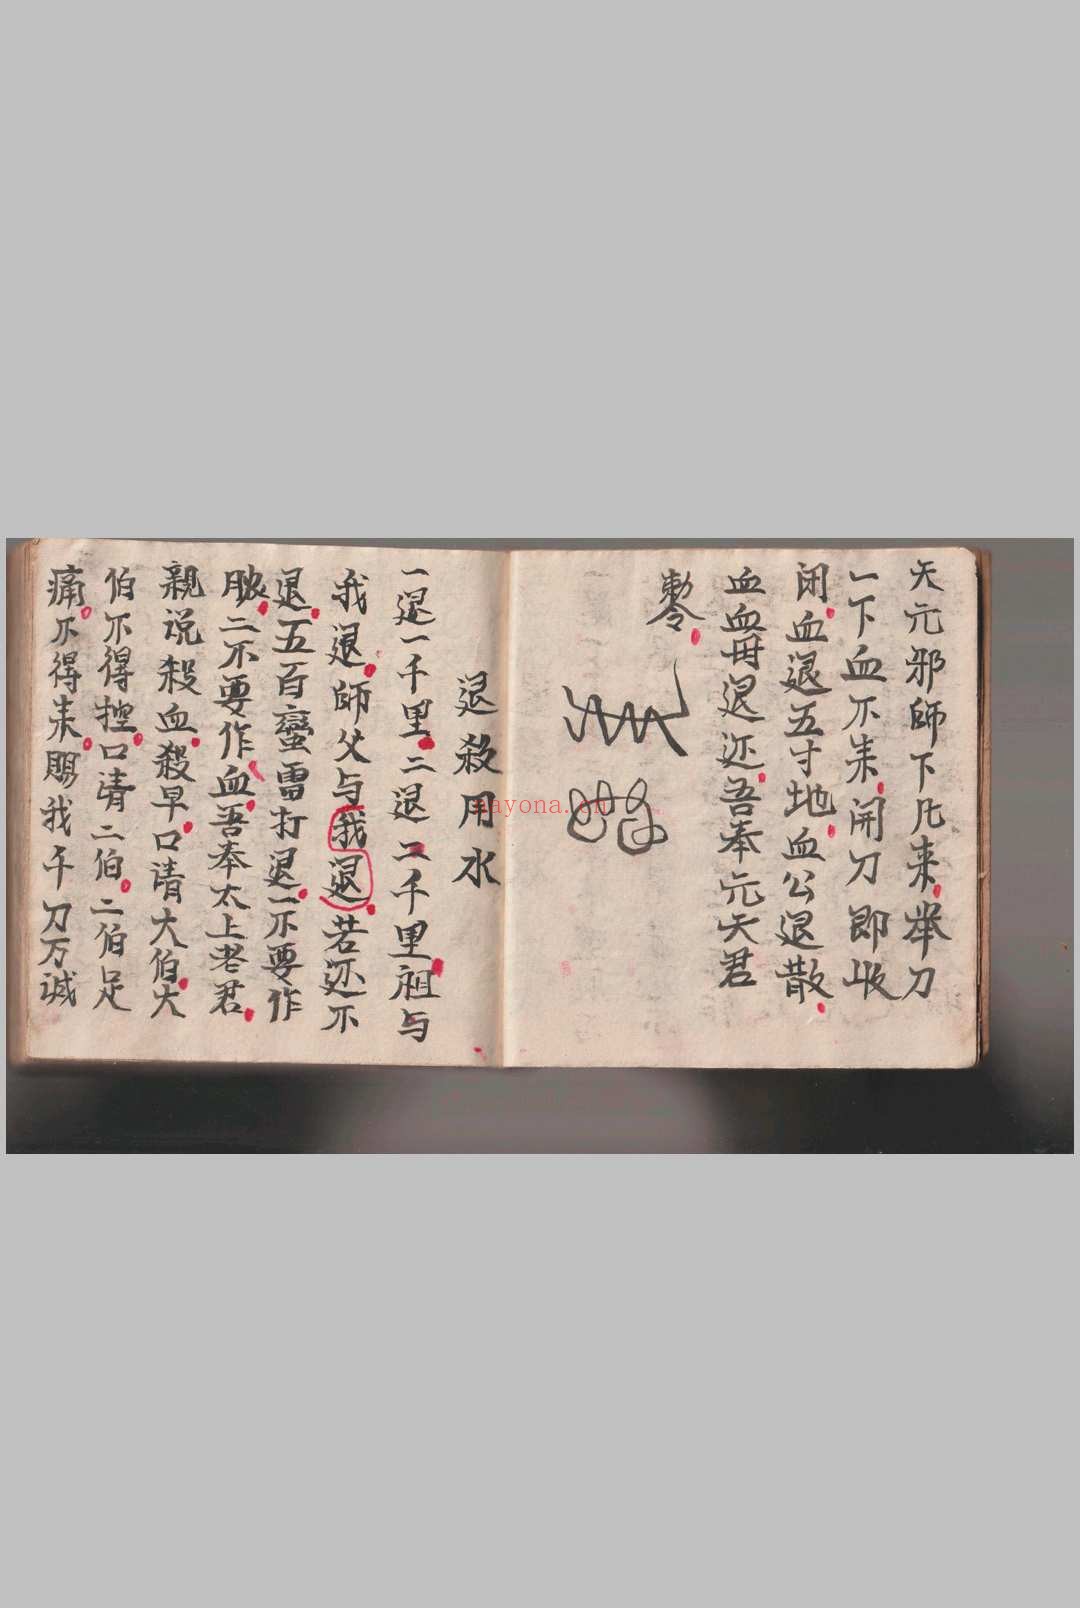 天元邪師下凡来举刀
一下血不来開刀即收
闭血退五寸地血公退散
血血毌退还吾奉元天君
勅令
退殺用水
一退一千里二退二千里祖与
我退師父与我退若还不
退五百蠻雷打退一不要作
膿二不要作血吾奉太上老君
親说殺血殺早口请大伯大
伯不得控口请二伯二伯足
痛不得来賜我千刀万诚
nayona.cn